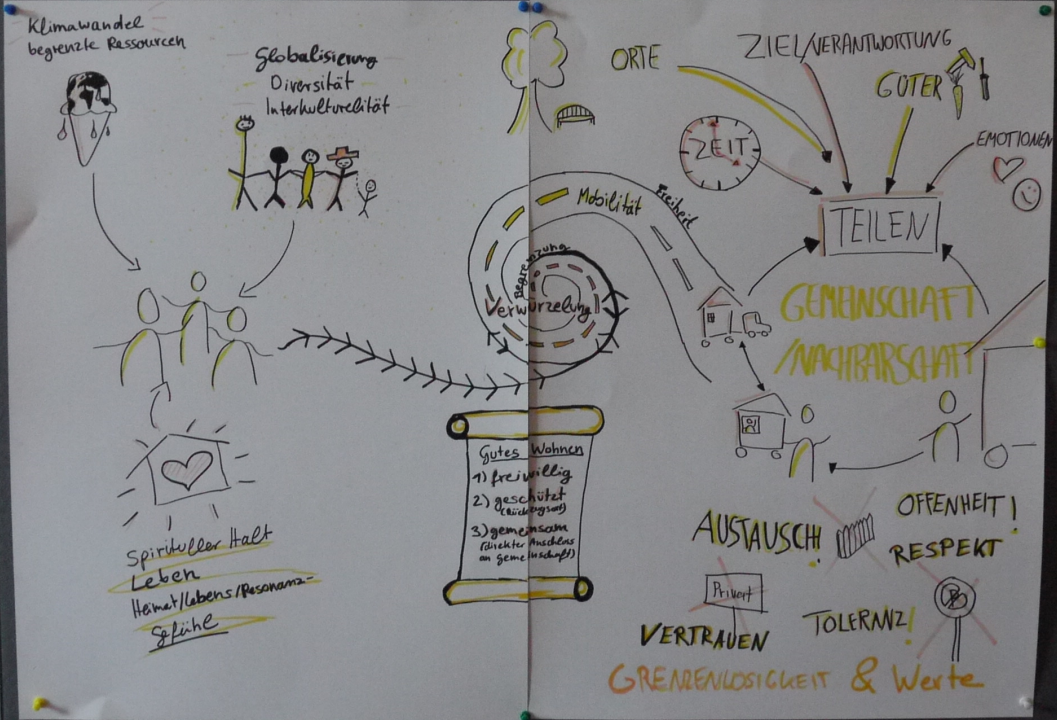 Klimawandel
begrenzte Ressourcen
Globalisierung
Diversität
Interkulturelität
Spiritueller Halt
Leben
Heimat/Lebens/Resonanz-
gefühle
Mobilität
Freiheit
Begrenzung
Verwurzelung
Gutes Wohnen
1) freiwillig
2) geschützt
(Rückzugsort)
3) gemeinsam
(direkter Anschluss
an gemeinschaft)
ORTE
ZIEL/VERANTWORTUNG
GÜTER
EMOTIONEN
ZEIT
TEILEN
GEMEINSCHAFT
/NACHBARSCHAFT
AUSTAUSCH!
OFFENHEIT!
RESPEKT
Privat
VERTRAUEN
TOLERANZ!
GRENZENLOSIGKEIT & Werte